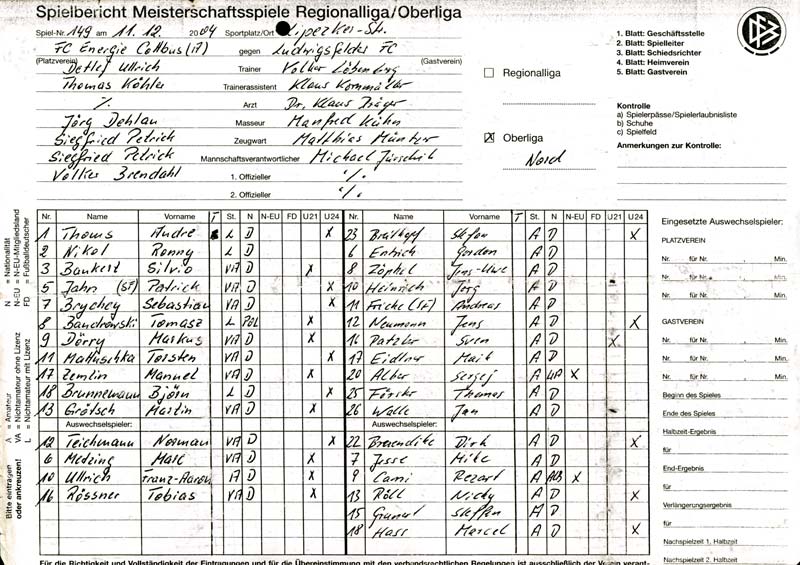 Spielbericht Meisterschaftsspiele Regionalliga/Oberliga
Spiel-Nr. 149 am 11. 12. 2004 Sportplatz/Ort Lipezker-Str.
FC Energie Cottbus (A) gegen Ludwigsfelder FC
(Platzverein) (Gastverein)
Detlef Ullrich Trainer Volker Löbenberg
Thomas Köhler Trainerassistent Klaus
%. Arzt Dr. Klaus Jäger
Jörg Dehlau Masseur Manfred Kühn
Siegfried Petrich Zeugwart Matthias Müntzer
Siegfried Petrick Mannschaftsverantwortlicher Michael
Volker Brendahl 1. Offizieller %.
2. Offizieller %.
Regionalliga
X Oberliga
Nord
1. Blatt: Geschäftsstelle
2. Blatt: Spielleiter
3. Blatt: Schiedsrichter
4. Blatt: Heimverein
5. Blatt: Gastverein
DFB
Kontrolle
a) Spielerpässe/Spielerlaubnisliste
b) Schuhe
c) Spielfeld
Anmerkungen zur Kontrolle:
N = Nationalität
N-EU = N-EU-Mitgliedsland
FD = Fußballdeutscher
A = Amateur
VA = Nichtamateur ohne Lizenz
L = Nichtamateur mit Lizenz
Bitte eintragen
oder ankreuzen!
Nr. Name Vorname T St. N N-EU FD U21 U24
1 Thoms André L D X
2 Nikol Ronny L D
3 Bankert Silvio VA D X
5 Jahn (SF) Patrick VA D X
7 Brychcy Sebastian VA D X
8 Bandrowski Tomasz L POL X
9 Dörry Markus VA D X
11 Mattuschka Torsten VA D X
17 Zemlin Manuel VA D X
18 Brunnemann Björn L D X
13 Grötsch Martin VA D X
Auswechselspieler:
12 Teichmann Norman VA D X
6 Metzing Marc VA D X
10 Ullrich Franz-Aaron A D X
16 Rössner Tobias VA D X
Nr. Name Vorname T St. N N-EU FD U21 U24
23 Breitkopf Stefan A D X
6 Entrich Gordon A D
8 Zöphel Jens-Uwe A D
10 Heinrich Jörg A D
11 Fricke (SF) Andreas A D
12 Neumann Jens A D X
16 Patzler Sven A D X
17 Eidtner Maik A D
20 Alber Sergej A X
25 Förster Thomas A D
26 Walle Jan A D
Auswechselspieler:
22 Dirk A D X
7 Jesse Mike A D
9 Cami Rezart A ALB X
13 Röll Nicky A D X
15 Steffen A D
18 Hass Marcel A D X
Eingesetzte Auswechselspieler:
PLATZVEREIN
Nr. für Nr. , Min.
Nr. für Nr. , Min.
Nr. für Nr. , Min.
GASTVEREIN
Nr. für Nr. , Min.
Nr. für Nr. , Min.
Nr. für Nr. , Min.
Beginn des Spieles
Ende des Spieles
Halbzeit-Ergebnis
für
End-Ergebnis
für
Verlängerungsergebnis
für
Nachspielzeit 1. Halbzeit
Nachspielzeit 2. Halbzeit
Für die Richtigkeit und Vollständigkeit der Eintragungen und für die Übereinstimmung mit den verbandsrechtlichen Regelungen ist ausschließlich der Verein verant-